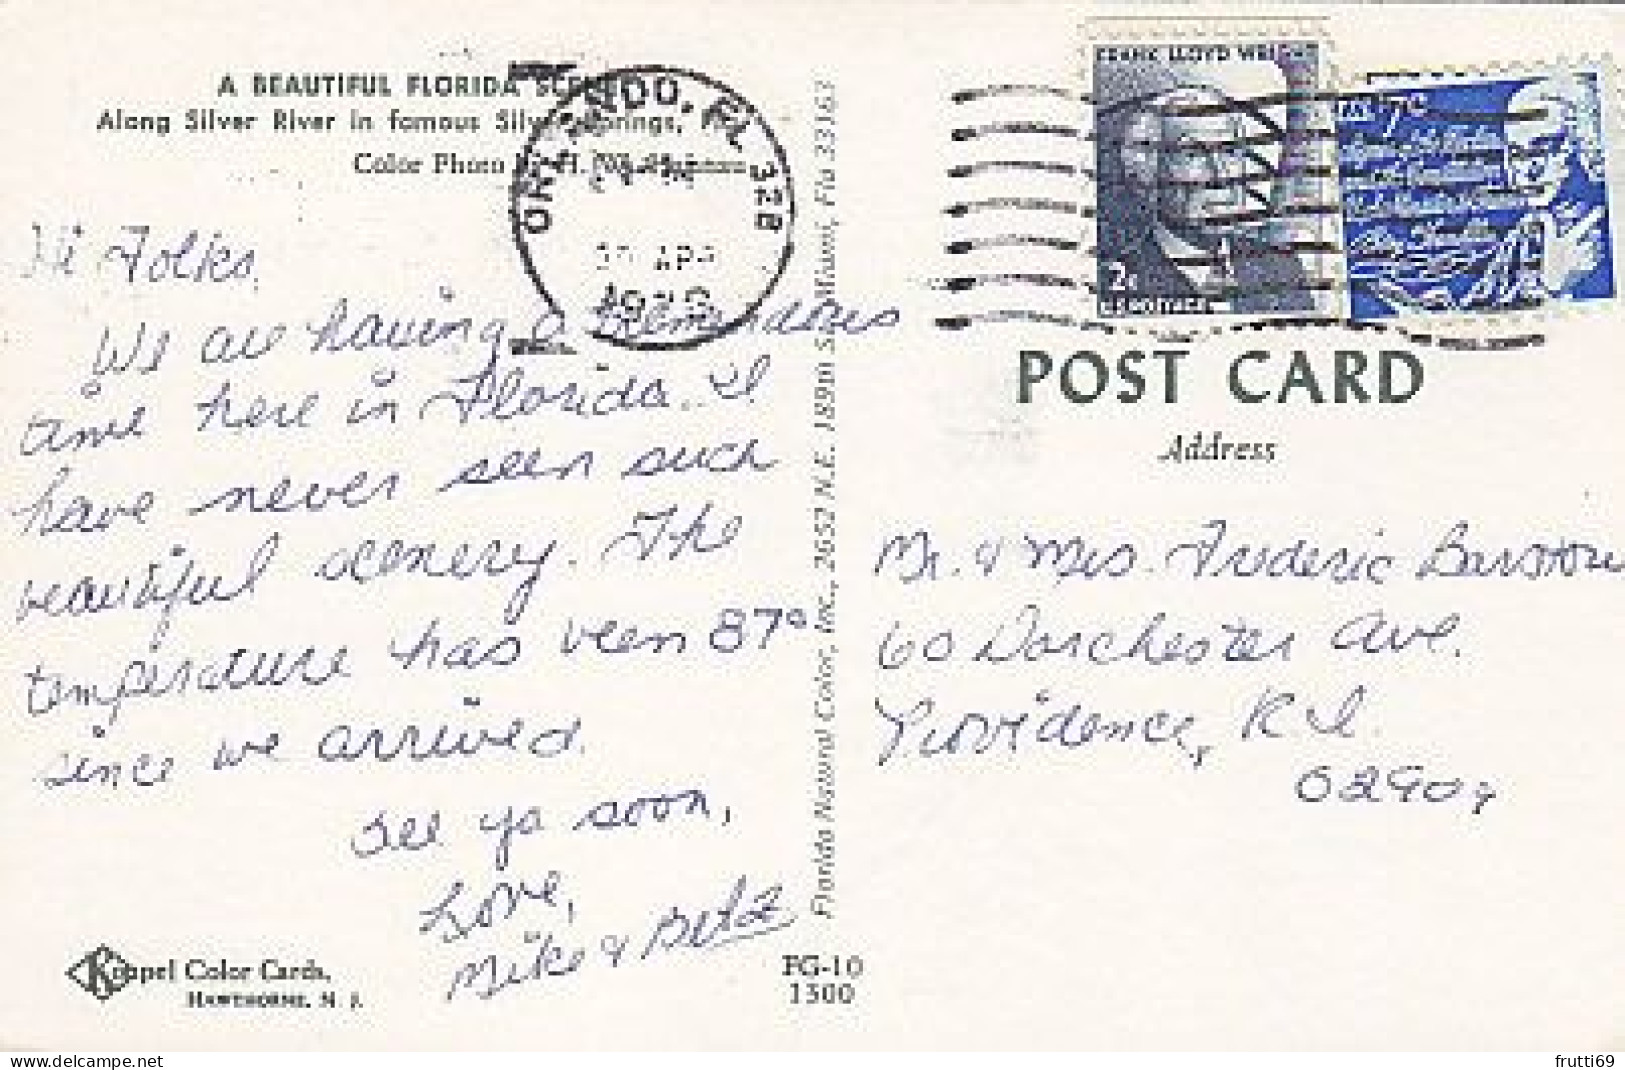 A BEAUTIFUL FLORIDA
Along Silver River in famous
Color Photo
ORLANDO, FL 328
APR
FRANK LLOYD WRIGHT
2¢
7¢
Hi Folks,
We are having a tremendous
time here in Florida. I
have never seen such
beautiful scenery. The
temperature has been 87°
since we arrived.
See ya soon,
Love,
Mike &
POST CARD
Address
Mr. & Mrs. Frederic Barstow
60 Dorchester Ave.
Providence, R.I.
Florida Natural Color, Inc., 2652 N.E. 189th St., Miami, Fla 33163
Koppel Color Cards,
HAWTHORNE, N. J.
FG-10
1500
frutti69